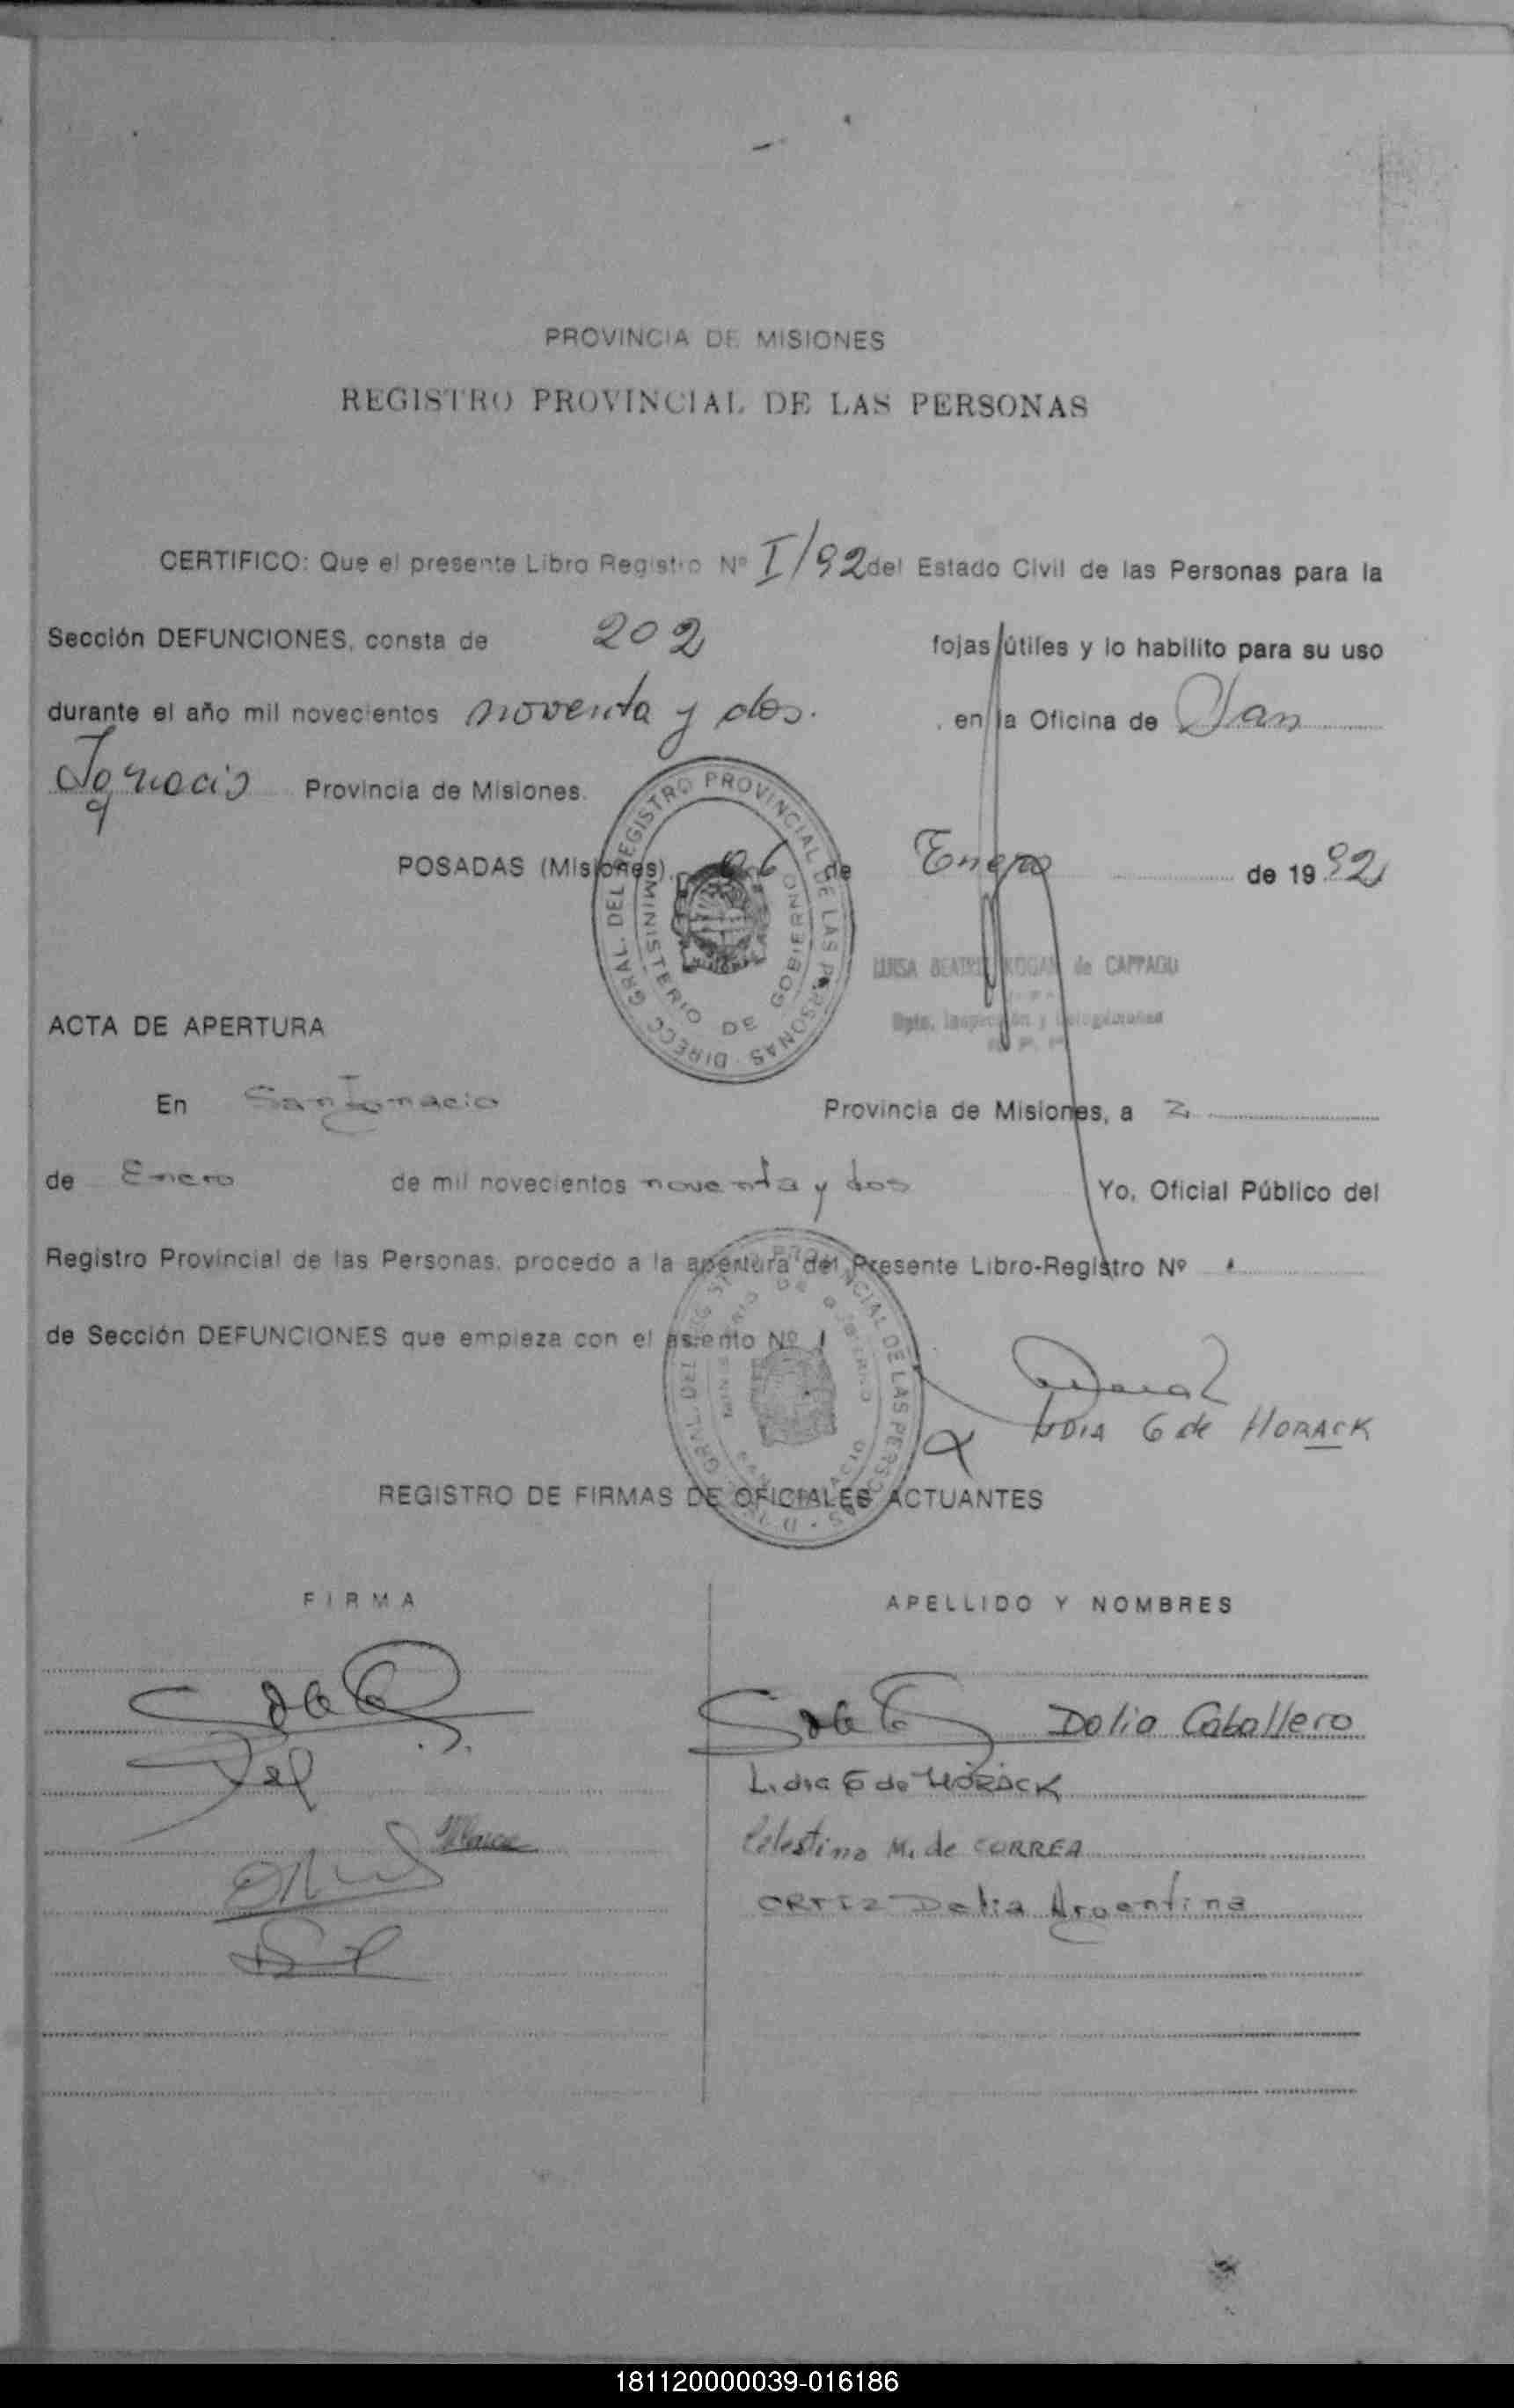 PROVINCIA DE MISIONES
REGISTRO PROVINCIAL DE LAS PERSONAS
CERTIFICO: Que el presente Libro Registro Nº I/92 del Estado Civil de las Personas para la
Sección DEFUNCIONES, consta de 202 fojas útiles y lo habilito para su uso
durante el año mil novecientos noventa y dos. , en la Oficina de San
Ignacio Provincia de Misiones.
REGISTRO PROVINCIAL DE LAS PERSONAS - DIRECC. GRAL. DEL
MINISTERIO DE GOBIERNO
POSADAS (Misiones), 06 de Enero de 1992
LUISA BEATRIZ KOGAN de CAPPAGLI
Dpto. Inspección y Delegaciones
ACTA DE APERTURA
En San Ignacio Provincia de Misiones, a 2
de Enero de mil novecientos noventa y dos Yo, Oficial Público del
Registro Provincial de las Personas, procedo a la apertura del Presente Libro-Registro Nº
de Sección DEFUNCIONES que empieza con el asiento Nº 1
LIDIA G de HORACK
REGISTRO DE FIRMAS DE OFICIALES ACTUANTES
FIRMA APELLIDO Y NOMBRES
Dolia Caballero
Lidia G de HORACK
Celestina M. de CORREA
ORTIZ Delia Argentina
181120000039-016186